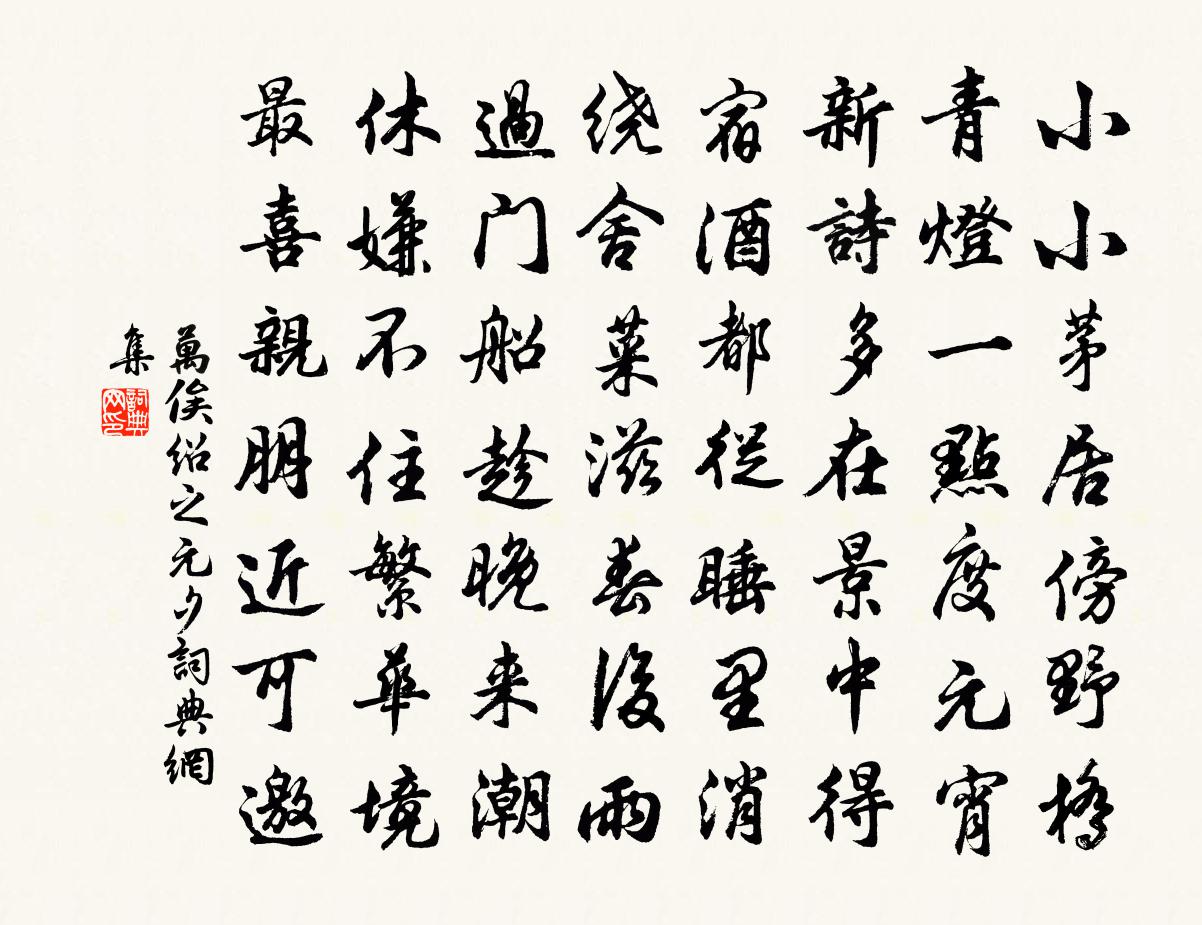 小小茅居傍野橋
青燈一點度元宵
新詩多在景中得
宿酒都從睡里消
绕舍菜滋春後雨
過门船趁晚来潮
休嫌不住繁華境
最喜親朋近可邀
萬俟绍之元夕詞典網
集
詞典网印